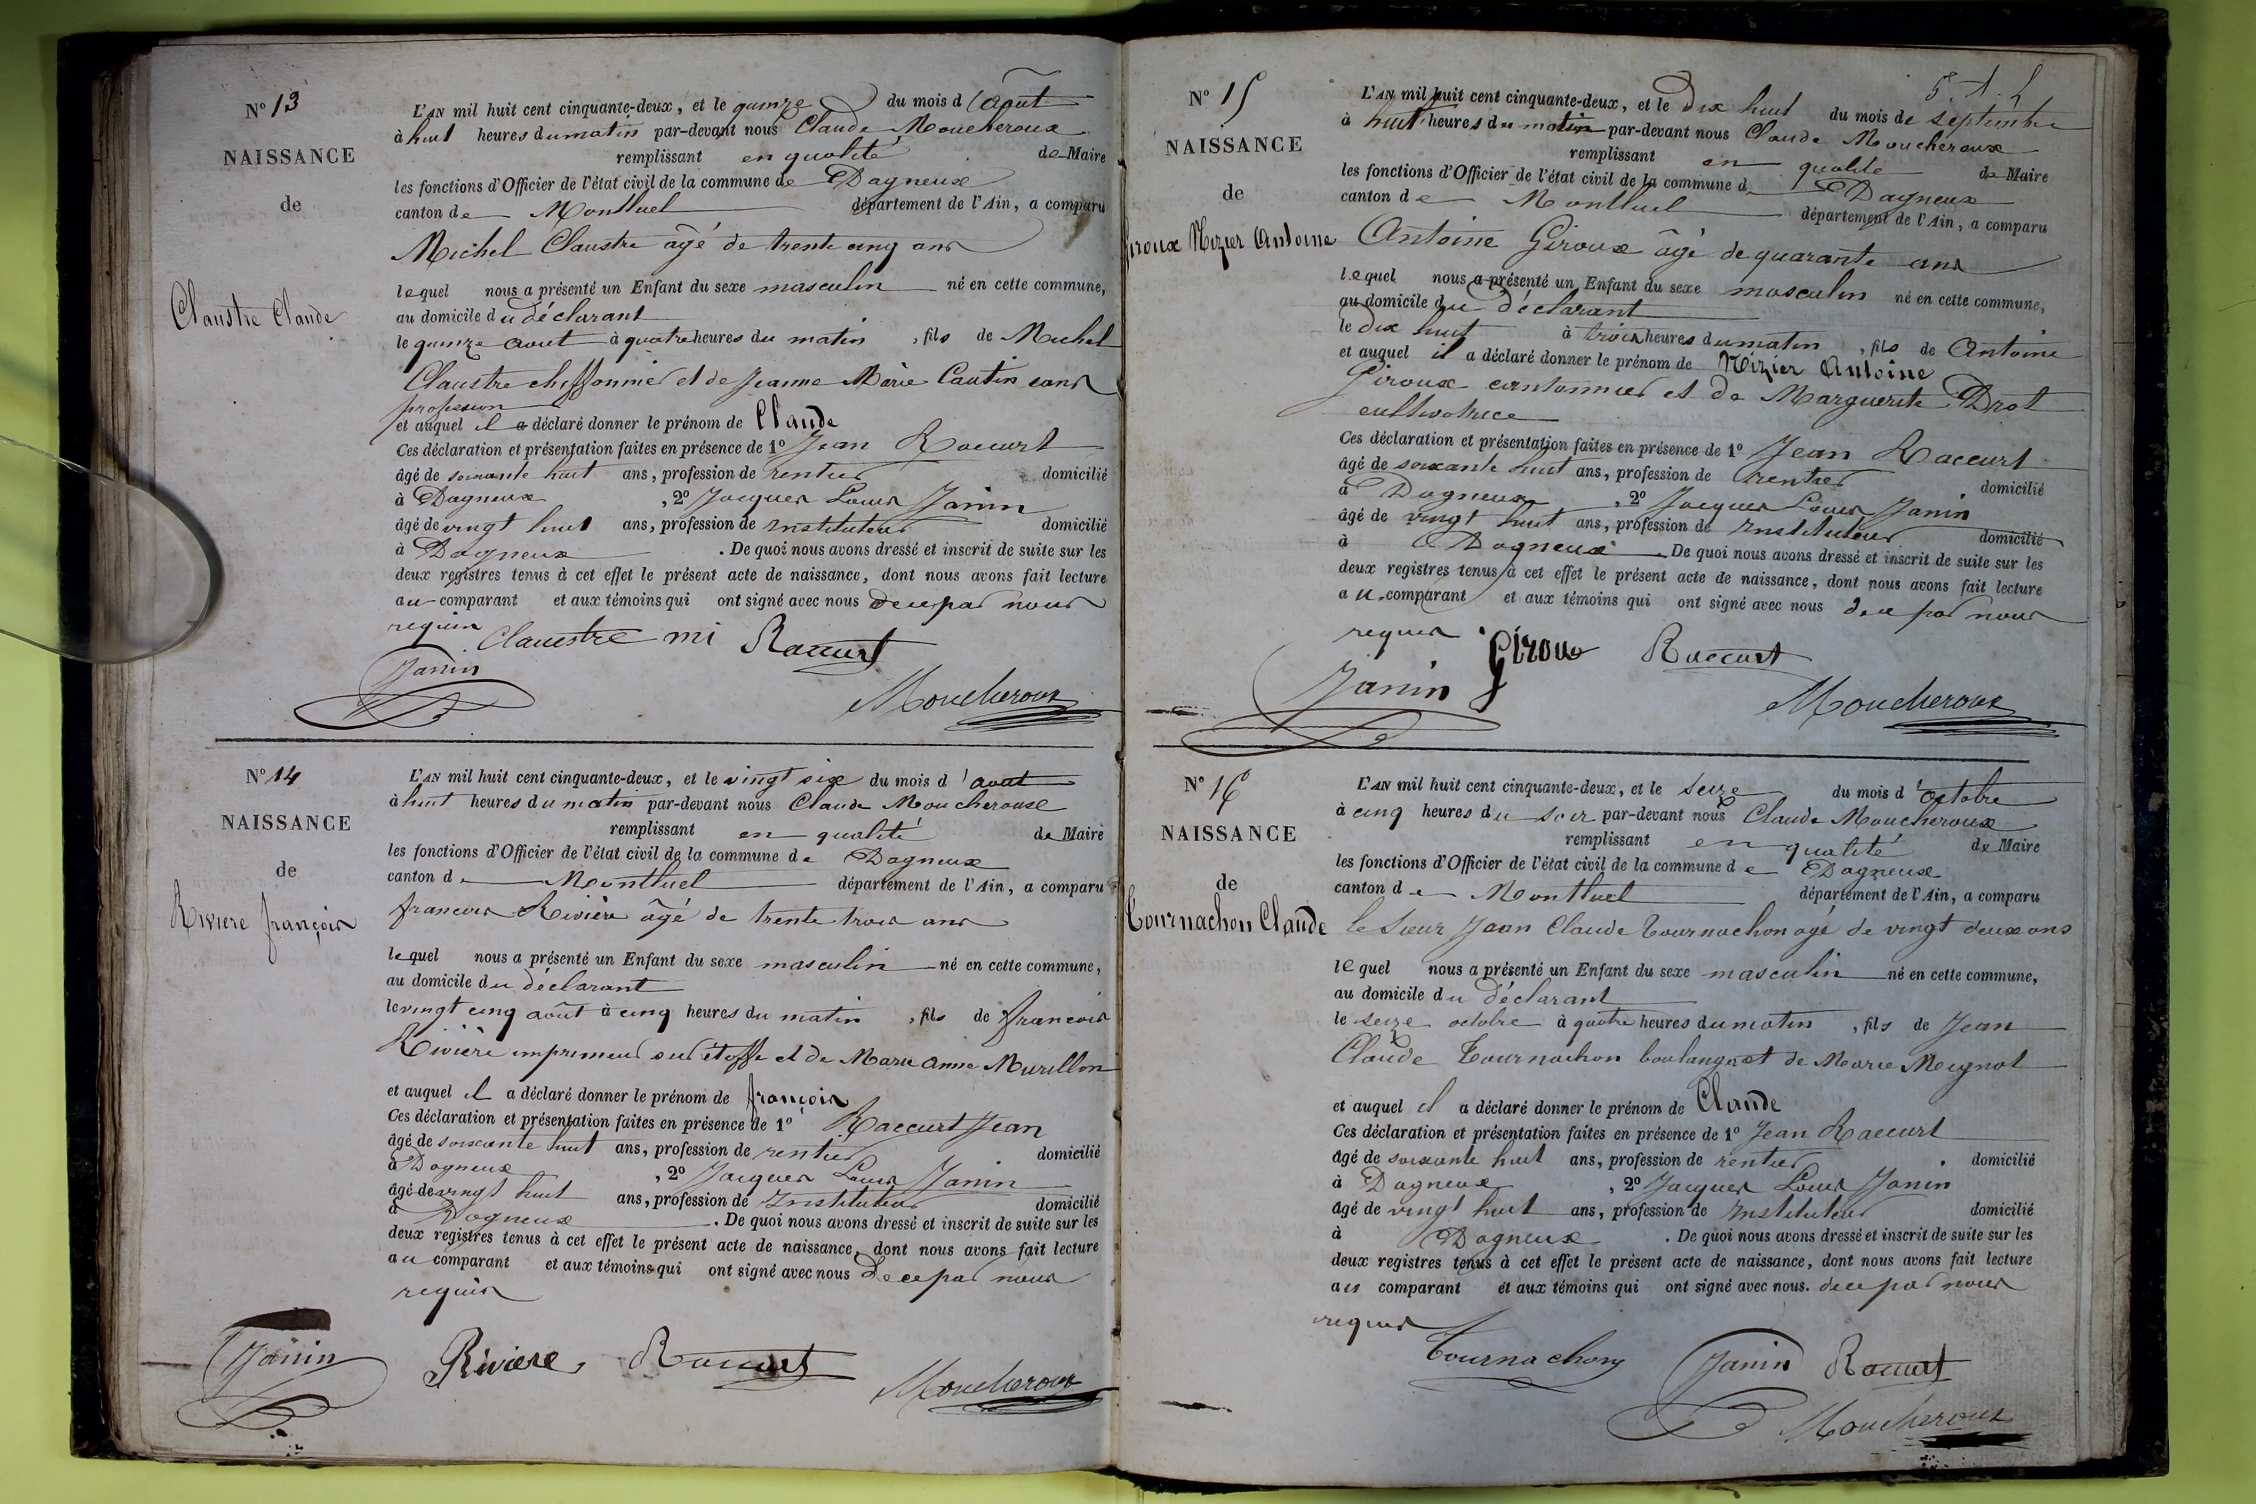 N° 13
NAISSANCE
de
Claustre Claude
L'AN mil huit cent cinquante-deux, et le quinze du mois d'Août
à huit heures du matin par-devant nous Claude Moucheroux
remplissant en qualité de Maire
les fonctions d'Officier de l'état civil de la commune de Dagneux
canton de Montluel département de l'Ain, a comparu
Michel Claustre âgé de trente cinq ans
lequel nous a présenté un Enfant du sexe masculin né en cette commune,
au domicile du déclarant
le quinze aout à quatre heures du matin, fils de Michel
Claustre chiffonnier et de Jeanne Marie Cautin sans
profession
et auquel il a déclaré donner le prénom de Claude
Ces déclaration et présentation faites en présence de 1° Jean Raccurt
âgé de soixante huit ans, profession de rentier domicilié
à Dagneux, 2° Jacques Louis Janin
âgé de vingt huit ans, profession de Instituteur domicilié
à Dagneux. De quoi nous avons dressé et inscrit de suite sur les
deux registres tenus à cet effet le présent acte de naissance, dont nous avons fait lecture
au comparant et aux témoins qui ont signé avec nous de ce par nous
requis
Clauestre mi Raccurt
Janin
Moucheroux
N° 14
NAISSANCE
de
Riviere françois
L'AN mil huit cent cinquante-deux, et le vingt six du mois d'aout
à huit heures du matin par-devant nous Claude Moucheroux
remplissant en qualité de Maire
les fonctions d'Officier de l'état civil de la commune de Dagneux
canton de Montluel département de l'Ain, a comparu
françois Rivière âgé de trente trois ans
lequel nous a présenté un Enfant du sexe masculin né en cette commune,
au domicile du déclarant
le vingt cinq août à cinq heures du matin, fils de françois
Rivière imprimeur sur étoffe et de Marie Anne Murillon
et auquel il a déclaré donner le prénom de françois
Ces déclaration et présentation faites en présence de 1° Raccurt Jean
âgé de soixante huit ans, profession de rentier domicilié
à Dagneux, 2° Jacques Louis Janin
âgé de vingt huit ans, profession de Instituteur domicilié
à Dagneux. De quoi nous avons dressé et inscrit de suite sur les
deux registres tenus à cet effet le présent acte de naissance, dont nous avons fait lecture
au comparant et aux témoins qui ont signé avec nous de ce par nous
requis
Janin Riviere Raccurt
Moucheroux
N° 15
NAISSANCE
de
Giroux Nizier Antoine
L'AN mil huit cent cinquante-deux, et le dix huit du mois de septembre
à huit heures du matin par-devant nous Claude Moucheroux
remplissant en qualité de Maire
les fonctions d'Officier de l'état civil de la commune de Dagneux
canton de Montluel département de l'Ain, a comparu
Antoine Giroux âgé de quarante ans
lequel nous a présenté un Enfant du sexe masculin né en cette commune,
au domicile du déclarant
le dix huit à trois heures du matin, fils de Antoine
et auquel il a déclaré donner le prénom de Nizier Antoine
Giroux cantonnier et de Marguerite Drot
cultivatrice
Ces déclaration et présentation faites en présence de 1° Jean Raccurt
âgé de soixante huit ans, profession de rentier domicilié
à Dagneux, 2° Jacques Louis Janin
âgé de vingt huit ans, profession de Instituteur domicilié
à Dagneux. De quoi nous avons dressé et inscrit de suite sur les
deux registres tenus à cet effet le présent acte de naissance, dont nous avons fait lecture
au comparant et aux témoins qui ont signé avec nous de ce par nous
requis Giroux Raccurt
Janin
Moucheroux
N° 16
NAISSANCE
de
Tournachon Claude
L'AN mil huit cent cinquante-deux, et le seize du mois d'octobre
à cinq heures du soir par-devant nous Claude Moucheroux
remplissant en qualité de Maire
les fonctions d'Officier de l'état civil de la commune de Dagneux
canton de Montluel département de l'Ain, a comparu
le sieur Jean Claude Tournachon agé de vingt deux ans
lequel nous a présenté un Enfant du sexe masculin né en cette commune,
au domicile du déclarant
le seize octobre à quatre heures du matin, fils de Jean
Claude Tournachon boulanger et de Marie Meignot
et auquel il a déclaré donner le prénom de Claude
Ces déclaration et présentation faites en présence de 1° Jean Raccurt
âgé de soixante huit ans, profession de rentier domicilié
à Dagneux, 2° Jacques Louis Janin
âgé de vingt huit ans, profession de Instituteur domicilié
à Dagneux. De quoi nous avons dressé et inscrit de suite sur les
deux registres tenus à cet effet le présent acte de naissance, dont nous avons fait lecture
au comparant et aux témoins qui ont signé avec nous. de ce par nous
requis
Tournachon Janin Raccurt
Moucheroux